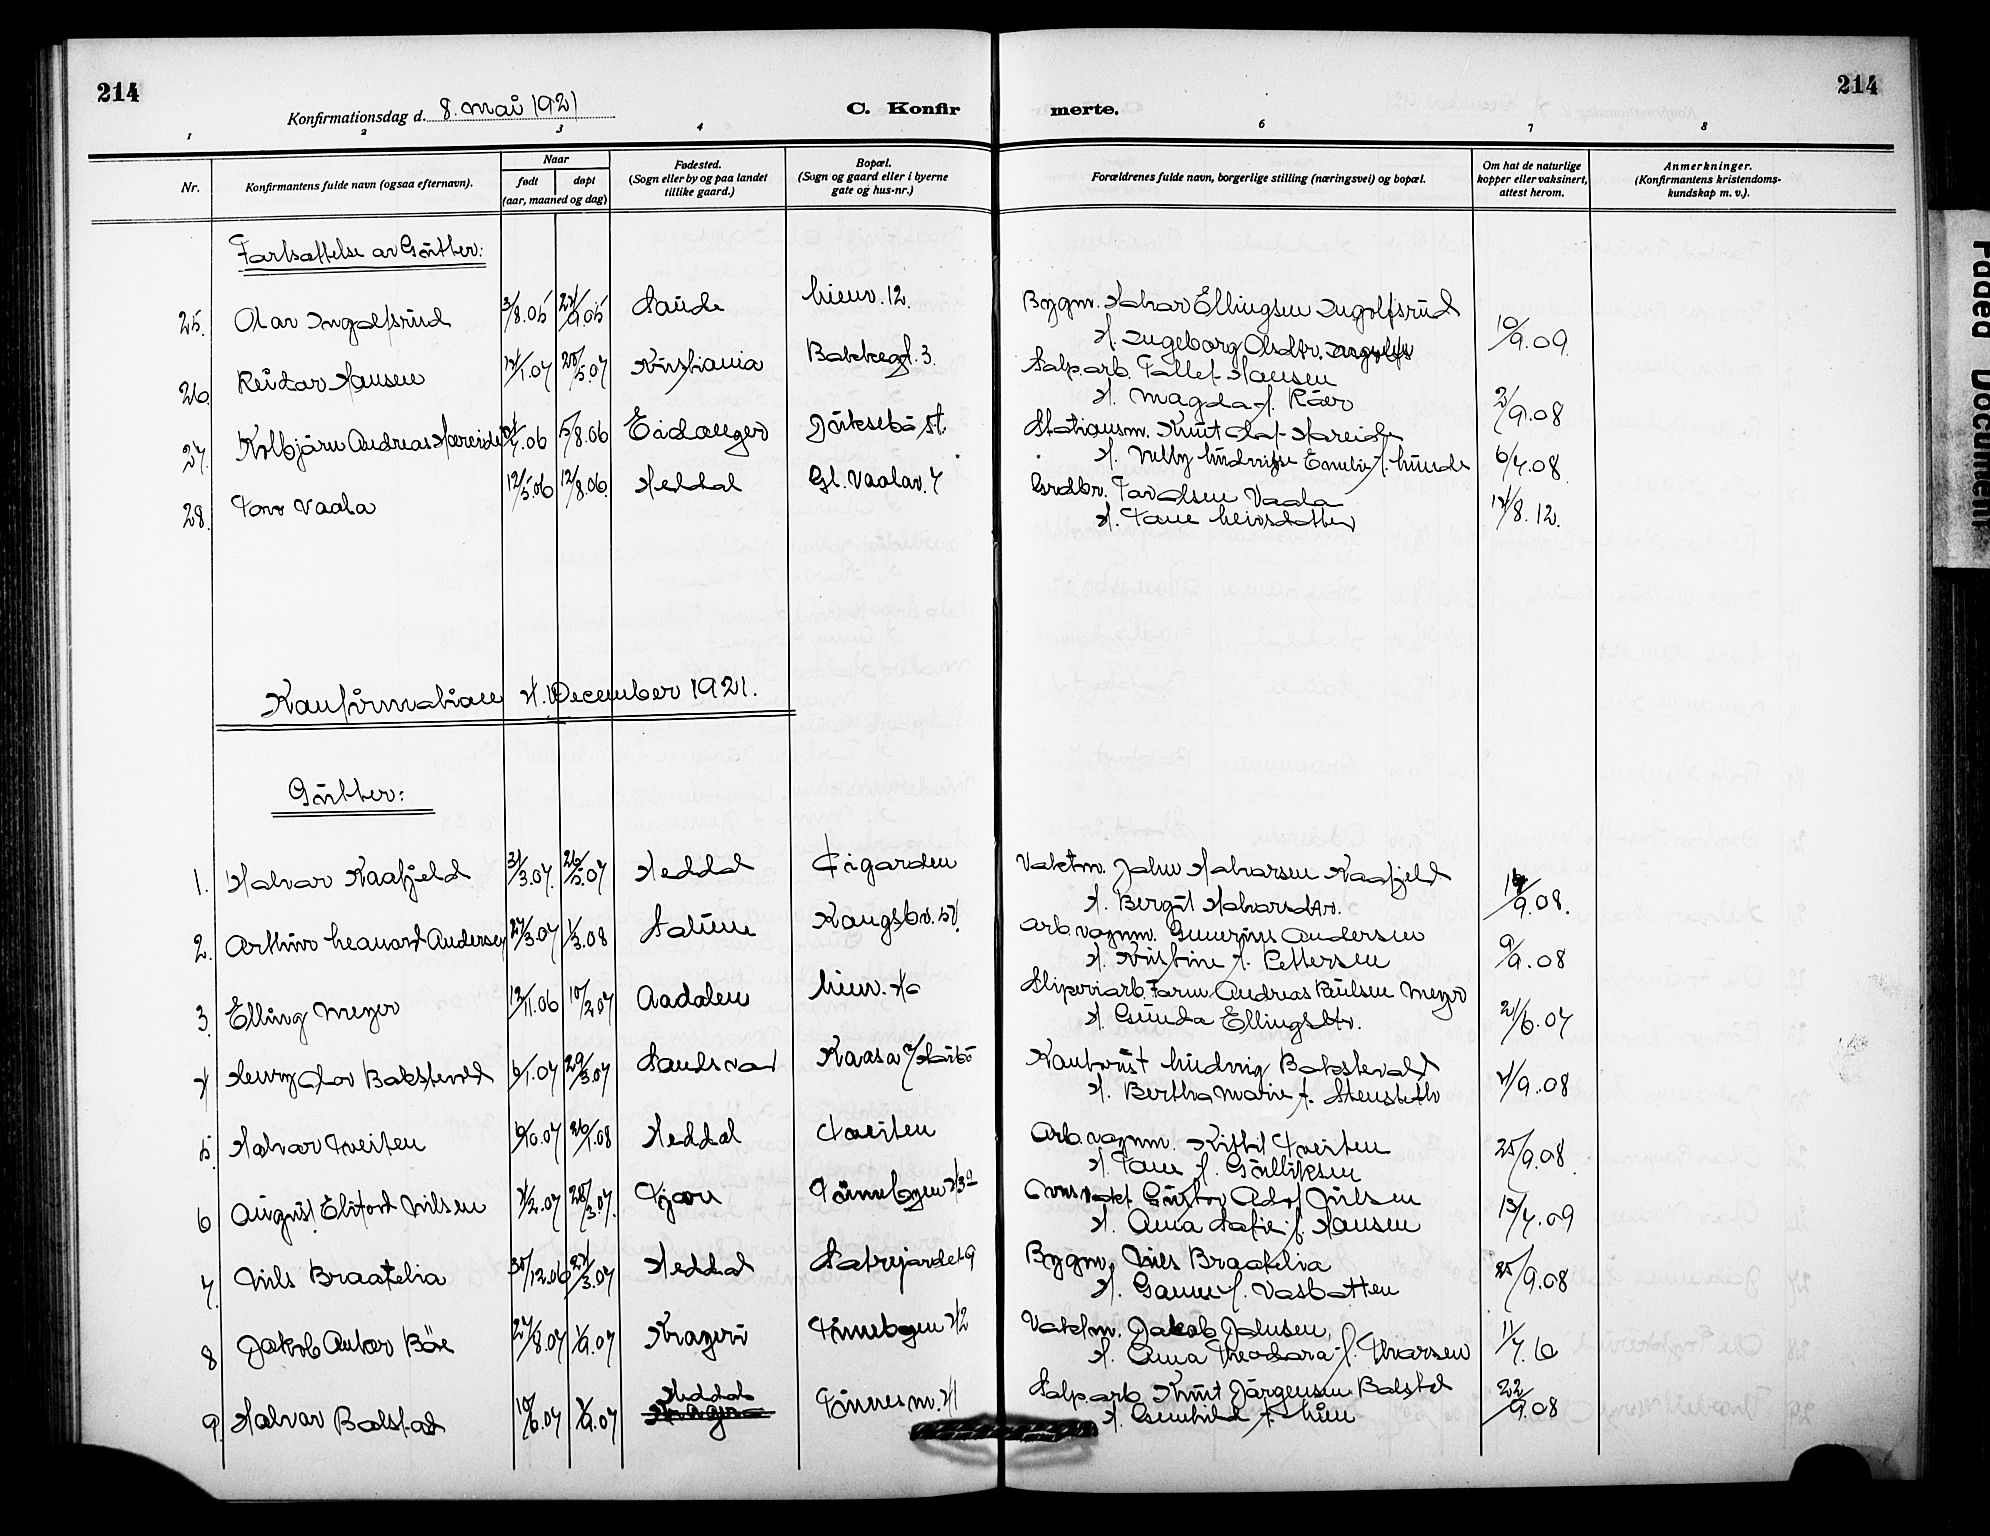 214
Konfirmationsdag d. 8. mai 1921
C. Konfirmerte.
214
1 2 3 4 5 6 7 8
Nr.
Konfirmantens fulde navn (ogsaa efternavn).
Naar
født døpt
(aar, maaned og dag)
Fødested.
(Sogn eller by og paa landet tillike gaard.)
Bopæl.
(Sogn og gaard eller i byerne gate og hus-nr.)
Forældrenes fulde navn, borgerlige stilling (næringsvei) og bopæl.
Om hat de naturlige kopper eller vaksinert, attest herom.
Anmerkninger.
(Konfirmantens kristendomskundskap m. v.).
Fortsættelse av Gutter:
25. Olav Ingolfsrud 3/8.05 24/9.05 Saude Lienv. 12. Bygm. Halvor Ellingsen Ingolfsrud 10/9.09
H. Ingeborg Olsdtr.
26. Reidar Hansen 12/1.07 20/5.07 Kristiania Bakkegt. 3. Salp.arb. Tallef Hansen 2/9.08
H. Magda f. Röer
27. Kolbjörn Andreas Hareide /4.06 5/8.06 Eidanger Jörkebö st. Stationsm. Knut Olaf Hareide 6/7.08
H. Nelly Ludvigse Emelie f. Lunde
28. Tor Vaala 12/5.06 12/8.06 Heddal Gl. Vaalav. 7 Grdbr. Tor Olsen Vaala 14/8.12.
H. Tone Leivsdatter
Konfirmation 4. December 1921.
Gutter:
1. Halvor Kaafjeld 31/3.07. 26/5.07 Heddal Tigarden Vaktm. John Halvorsen Kaafjeld /9.08.
H. Bergit Halvorsdtr.
2. Arthur Leonard Andersen 27/3.07 1/3.08 Solum Kongsbv. 54. Arb. vognm. Gunerius Andersen 9/9.08
H. Kristine f. Pettersen
3. Elling Meyer 12/11.06 10/2.07 Aadalen Lienv. 40 Sliperiarb. Form. Andreas Paulsen Meyer 21/6.07
H. Gunda Ellingsdtr.
4 Henry Olav Bakstevold 6/1.07 29/3.07 Sandsvær Kaasa Kontorist Ludvig Bakstevold 4/9.08
H. Bertha Marie f. Stensbeth
5. Halvor Tveiten 6/10.07 26/1.08 Heddal Tveiten Arb. vognm. Kittil Tveiten 25/9.08
H. Tone f. Gulliksen
6 August Eliford Nilsen 4/2.07 28/3.07. Tjøm Tinnebyen 43 a Gustav Adolf Nilsen 13/7.09
H. Anna Sofie f. Hansen
7. Nils Braatelia 30/12.06 24/3.07 Heddal Sætrejordet 9 Bygm. Nils Braatelia 25/9.08
H. Gunne f. Vasbotten
8 Jakob Anker Böe 27/8.07 1/9.07 Kragerö Tinnebyen 42 Vaktm. Jakob Johnsen. 11/7.16
H. Anna Theodora f. Thorsen
9. Halvor Bolstad 10/6.07 1/9.07 Heddal Tinnesm. 41 Salp.arb. Knut Jørgensen Bolstad 22/9.08
H. Gunhild f. Lien
Faded Document